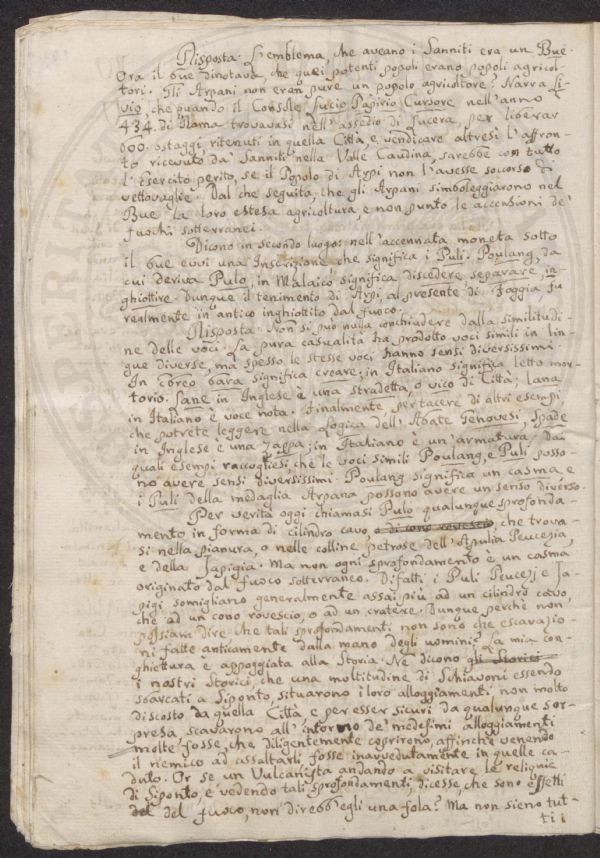 Risposta. L'emblema, che aveano i Sanniti era un Bue.
Ora il bue dinotava, che quei potenti popoli erano popoli agricol-
tori. Gli Arpani non eran pure un popolo agricoltore? Narra Li-
vio, che quando il Console Lucio Papirio Cursore nell'anno
434. di Roma trovavasi nell'assedio di Lucera per liberar
600. ostaggi ritenuti in quella Città, e vendicare altresì l'affron-
to ricevuto da' Sanniti nella Valle Caudina, sarebbe con tutto
l'Esercito perito, se il Popolo di Arpi non l'avesse soccorso di
vettovaglie. Dal che seguita, che gli Arpani simboleggiarono nel
Bue la loro estesa agricoltura, e non punto le accensioni de'
fuochi sotterranei.
Dicono in secondo luogo: nell'accennata moneta sotto
il bue evvi una Inscrizione, che significa i Puli. Poulang, da
cui deriva Pulo, in Malaico significa discedere, separare, in-
ghiottire. Dunque il tenimento di Arpi, al presente di Foggia, fu
realmente in antico inghiottito dal fuoco.
Risposta. Non si può nulla conchiudere dalla similitudi-
ne delle voci. La pura casualità ha prodotto voci simili in lin-
gue diverse, ma spesso le stesse voci hanno sensi diversissimi.
In Ebreo bara significa creare; in Italiano significa letto mor-
torio. Lane in Inglese è una stradetta, o vico di Città; lana
in Italiano è voce nota. Finalmente, per tacere di altri esempi,
che potrete leggere nella Logica dell'Abate Genovesi, Spade
in Inglese è una Zappa; in Italiano è un'armatura. Dai
quali esempi raccogliesi, che le voci simili Poulang, e Puli posso-
no avere sensi diversissimi. Poulang significa un casma, e
i Puli della medaglia Arpana possono avere un senso diverso.
Per verità oggi chiamasi Pulo qualunque sprofonda-
mento in forma di cilindro cavo o di cono rovescio, che trova-
si nella pianura, o nelle colline petrose dell'Apulia Peucezia,
e della Japigia. Ma non ogni sprofondamento è un casma
originato dal fuoco sotterraneo. Difatti i Puli Peucezj e Ja-
pigi somigliano generalmente assai più ad un cilindro cavo,
che ad un cono rovescio, o ad un cratere. Dunque perchè non
possiam dire che tali sprofondamenti non sono che escavazio-
ni fatte anticamente dalla mano degli uomini? La mia con-
ghiettura è appoggiata alla Storia. Ne dicono gli Storici
i nostri Storici, che una moltitudine di Schiavoni essendo
sbarcati a Siponto, situarono i loro alloggiamenti non molto
discosto da quella Città, e per esser sicuri da qualunque sor-
presa, scavarono all'intorno de' medesimi alloggiamenti
molte fosse, che diligentemente coprirono, affinchè venendo
il nemico ad assaltarli fosse inavvedutamente in quelle ca-
duto. Or se un Vulcanista andando a visitare le reliquie
di Siponto, e vedendo tali sprofondamenti, dicesse, che sono effetti
del del fuoco, non direbb'egli una fola? Ma non sieno tut-
ti i